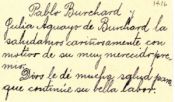 1416
Pablo Burchard y
Julia Aguayo de Burchard la
saludamos cariñosamente con
motivo de su muy merecido pre-
mio.
Dios le dé mucha salud para
que continúe su bella labor.